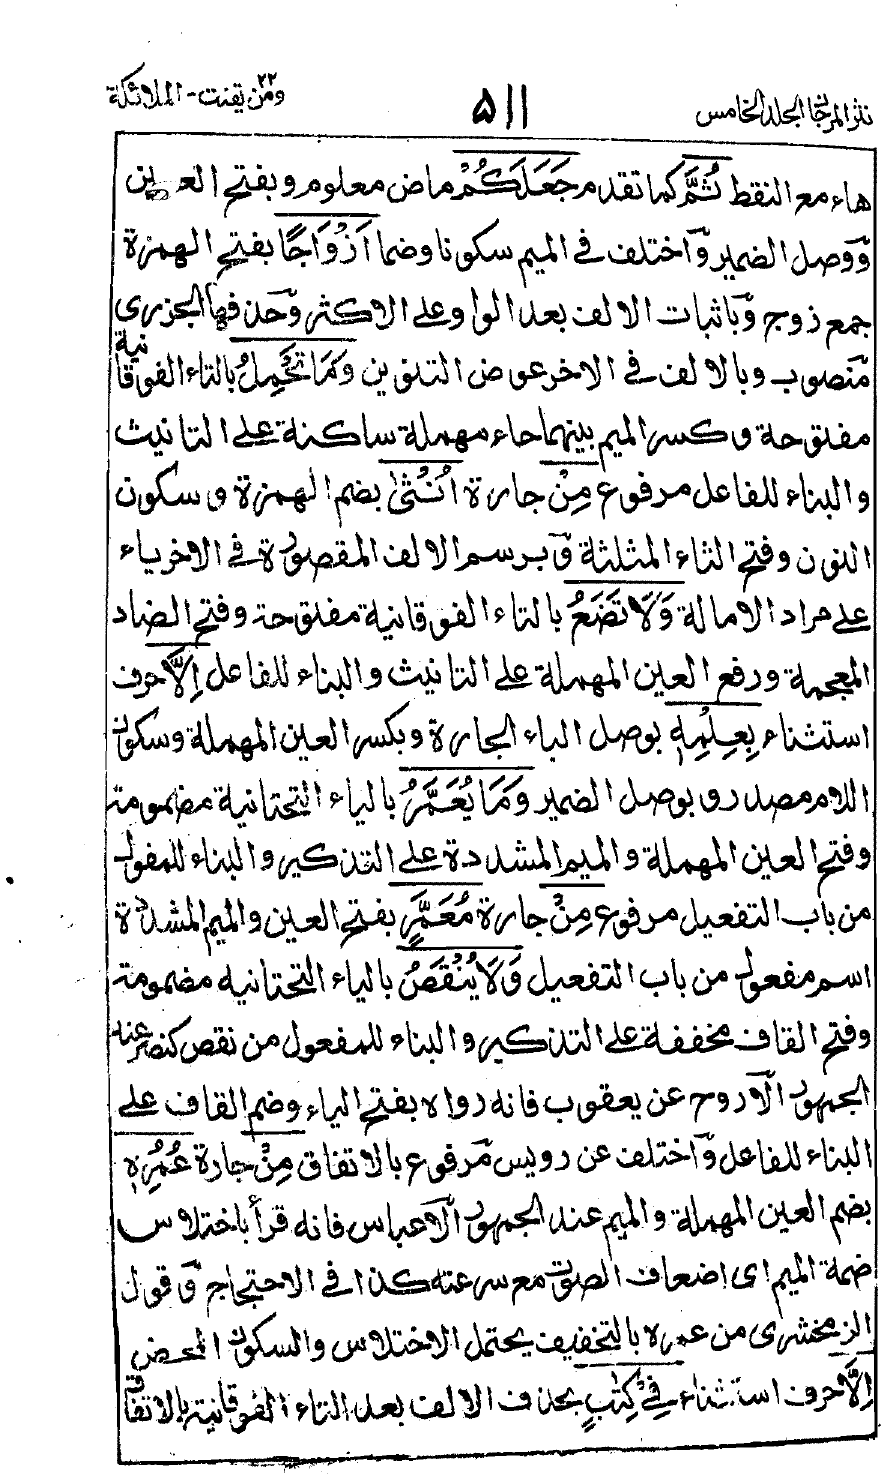 نثر المرجان الجلد الخامس ۵۱۱ ومن يقنت - ٢٢ الملائكة
هاء مع النقط ثُمَّ كما تقدم جَعَلَكُمْ ماض معلوم وبفتح العين
ووصل الضمير واختلف في الميم سكونا وضما اَزْوَاجًا بفتح الهمزة
جمع زوج وباثبات الالف بعد الواو على الاكثر وحذفها الجزري
منصوب وبالالف في الاخر عوض التنوين وَمَا تَحْمِلُ بالتاء الفوقانية
مفتوحة وكسر الميم بينهما حاء مهملة ساكنة على التانيث
والبناء للفاعل مرفوع مِنْ جارة اُنْثٰى بضم الهمزة وسكون
النون وفتح الثاء المثلثة وبرسم الالف المقصورة في الاخر ياء
على مراد الامالة وَلَا تَضَعُ بالتاء الفوقانية مفتوحة وفتح الضاد
المعجمة ورفع العين المهملة على التانيث والبناء للفاعل اِلَّا حرف
استثناء بِعِلْمِهٖ بوصل الباء الجارة وبكسر العين المهملة وسكون
اللام مصدر وبوصل الضمير وَمَا يُعَمَّرُ بالياء التحتانية مضمومة
وفتح العين المهملة والميم المشددة على التذكير والبناء للمفعول
من باب التفعيل مرفوع مِنْ جارة مُعَمَّرٍ بفتح العين والميم المشددة
اسم مفعول من باب التفعيل وَلَا يُنْقَصُ بالياء التحتانيه مضمومة
وفتح القاف مخففة على التذكير والبناء للمفعول من نقص كنصر عند
الجمهور الا روح عن يعقوب فانه رواه بفتح الياء وضم القاف على
البناء للفاعل واختلف عن رويس مرفوع بالاتفاق مِنْ جارة عُمُرِهٖ
بضم العين المهملة والميم عند الجمهور الا عباس فانه قرأ باختلاس
ضمة الميم اى اضعاف الصوت مع سرعته كذا في الاحتجاج وقول
الزمخشرى من عمره بالتخفيف يحتمل الاختلاس والسكون المحض
اِلَّا حرف استثناء فِيْ كِتٰبٍ بحذف الالف بعد التاء الفوقانية بالاتفاق